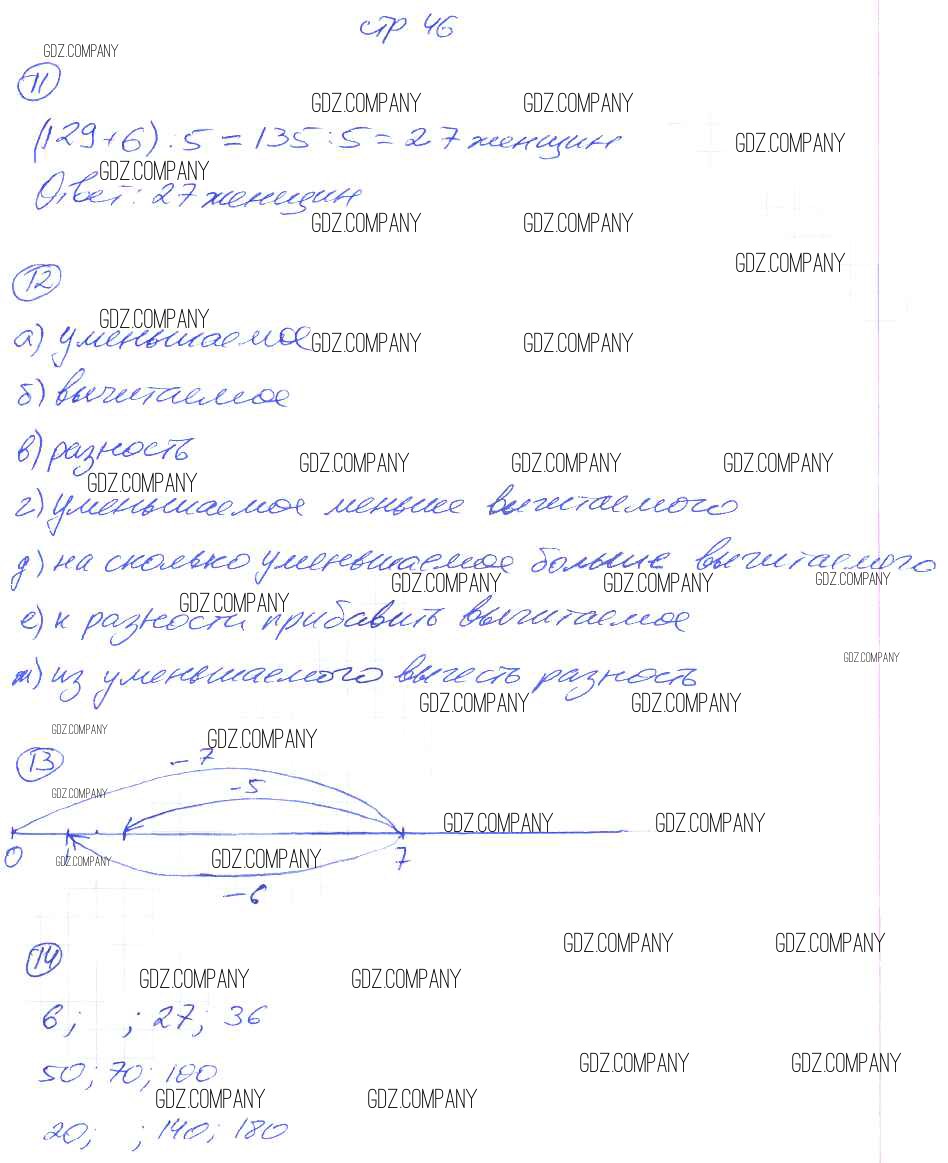 стр 46
GDZ.COMPANY
11
GDZ.COMPANY GDZ.COMPANY
(129+6):5=135:5=27 женщин
GDZ.COMPANY
GDZ.COMPANY
Ответ: 27 женщин
GDZ.COMPANY GDZ.COMPANY
GDZ.COMPANY
12
GDZ.COMPANY
а) уменьшаемое
GDZ.COMPANY GDZ.COMPANY
б) вычитаемое
в) разность
GDZ.COMPANY GDZ.COMPANY GDZ.COMPANY
GDZ.COMPANY
г) уменьшаемое меньше вычитаемого
д) на сколько уменьшаемое больше вычитаемого
GDZ.COMPANY GDZ.COMPANY GDZ.COMPANY
GDZ.COMPANY
е) к разности прибавить вычитаемое
GDZ.COMPANY
ж) из уменьшаемого вычесть разность
GDZ.COMPANY GDZ.COMPANY
GDZ.COMPANY
GDZ.COMPANY
13
-7
-5
GDZ.COMPANY
GDZ.COMPANY GDZ.COMPANY
0 1 7
GDZ.COMPANY GDZ.COMPANY
-6
GDZ.COMPANY GDZ.COMPANY
14
GDZ.COMPANY GDZ.COMPANY
6; ; 27; 36
50; 70; 100
GDZ.COMPANY GDZ.COMPANY
GDZ.COMPANY GDZ.COMPANY
20; ; 140; 180